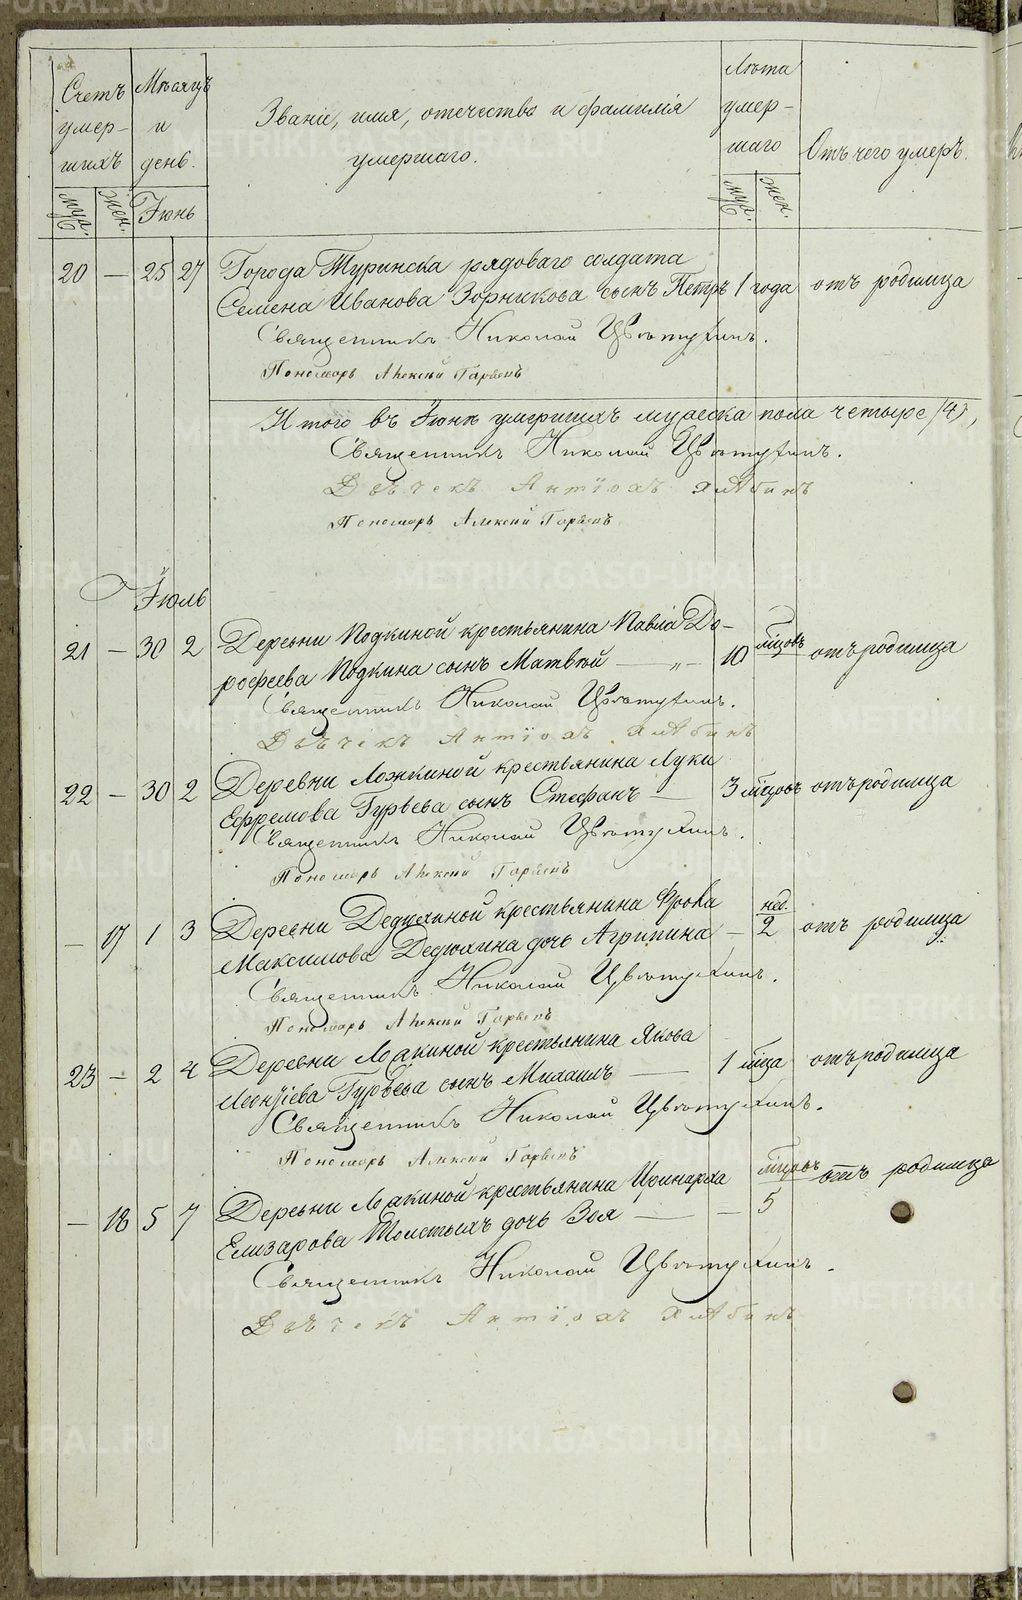 Счетъ умер-шихъ
Мѣсяцъ и день.
Званіе, имя, отчество и фамилія
умершаго.
Лѣта умер-шаго
Отъ чего умеръ.
муж. жен. Іюнь муж. жен.
20 — 25 27 Города Туринска рядоваго солдата
Семена Иванова Зорникова сынъ Петръ 1 года отъ родимца
Священникъ Николай Цвѣтухинъ.
Пономарь Алексѣй
Итого въ Іюнѣ умершихъ мужеска пола четыре (4),
Священникъ Николай Цвѣтухинъ.
Дьячекъ Антіохъ
Пономарь Алексѣй
Іюль
21 — 30 2 Деревни Кодкиной крестьянина Павла До-
рофеева Кодкина сынъ Матвѣй — „ — 10 мѣсцовъ отъ родимца
Священникъ Николай Цвѣтухинъ.
Дьячекъ Антіохъ
22 — 30 2 Деревни Ложкиной крестьянина Луки
Ефремова Гурьева сынъ Стефанъ — 3 мѣсцовъ отъ родимца
Священникъ Николай Цвѣтухинъ.
Пономарь Алексѣй
— 17 1 3 Деревни Дедюхиной крестьянина Фрола
Максимова Дедюхина дочь Агрипина — нед. 2 отъ родимца
Священникъ Николай Цвѣтухинъ.
Пономарь Алексѣй
23 — 2 4 Деревни Ложкиной крестьянина Якова
Леонтіева Гурьева сынъ Михаилъ — 1 мѣсца отъ родимца
Священникъ Николай Цвѣтухинъ.
Пономарь Алексѣй
— 18 5 7 Деревни Ложкиной крестьянина Иринарха
Елизарова Толстыхъ дочь Зоя — — мѣсцовъ 5 отъ родимца
Священникъ Николай Цвѣтухинъ.
Дьячекъ Антіохъ
METRIKI.GASO-URAL.RU